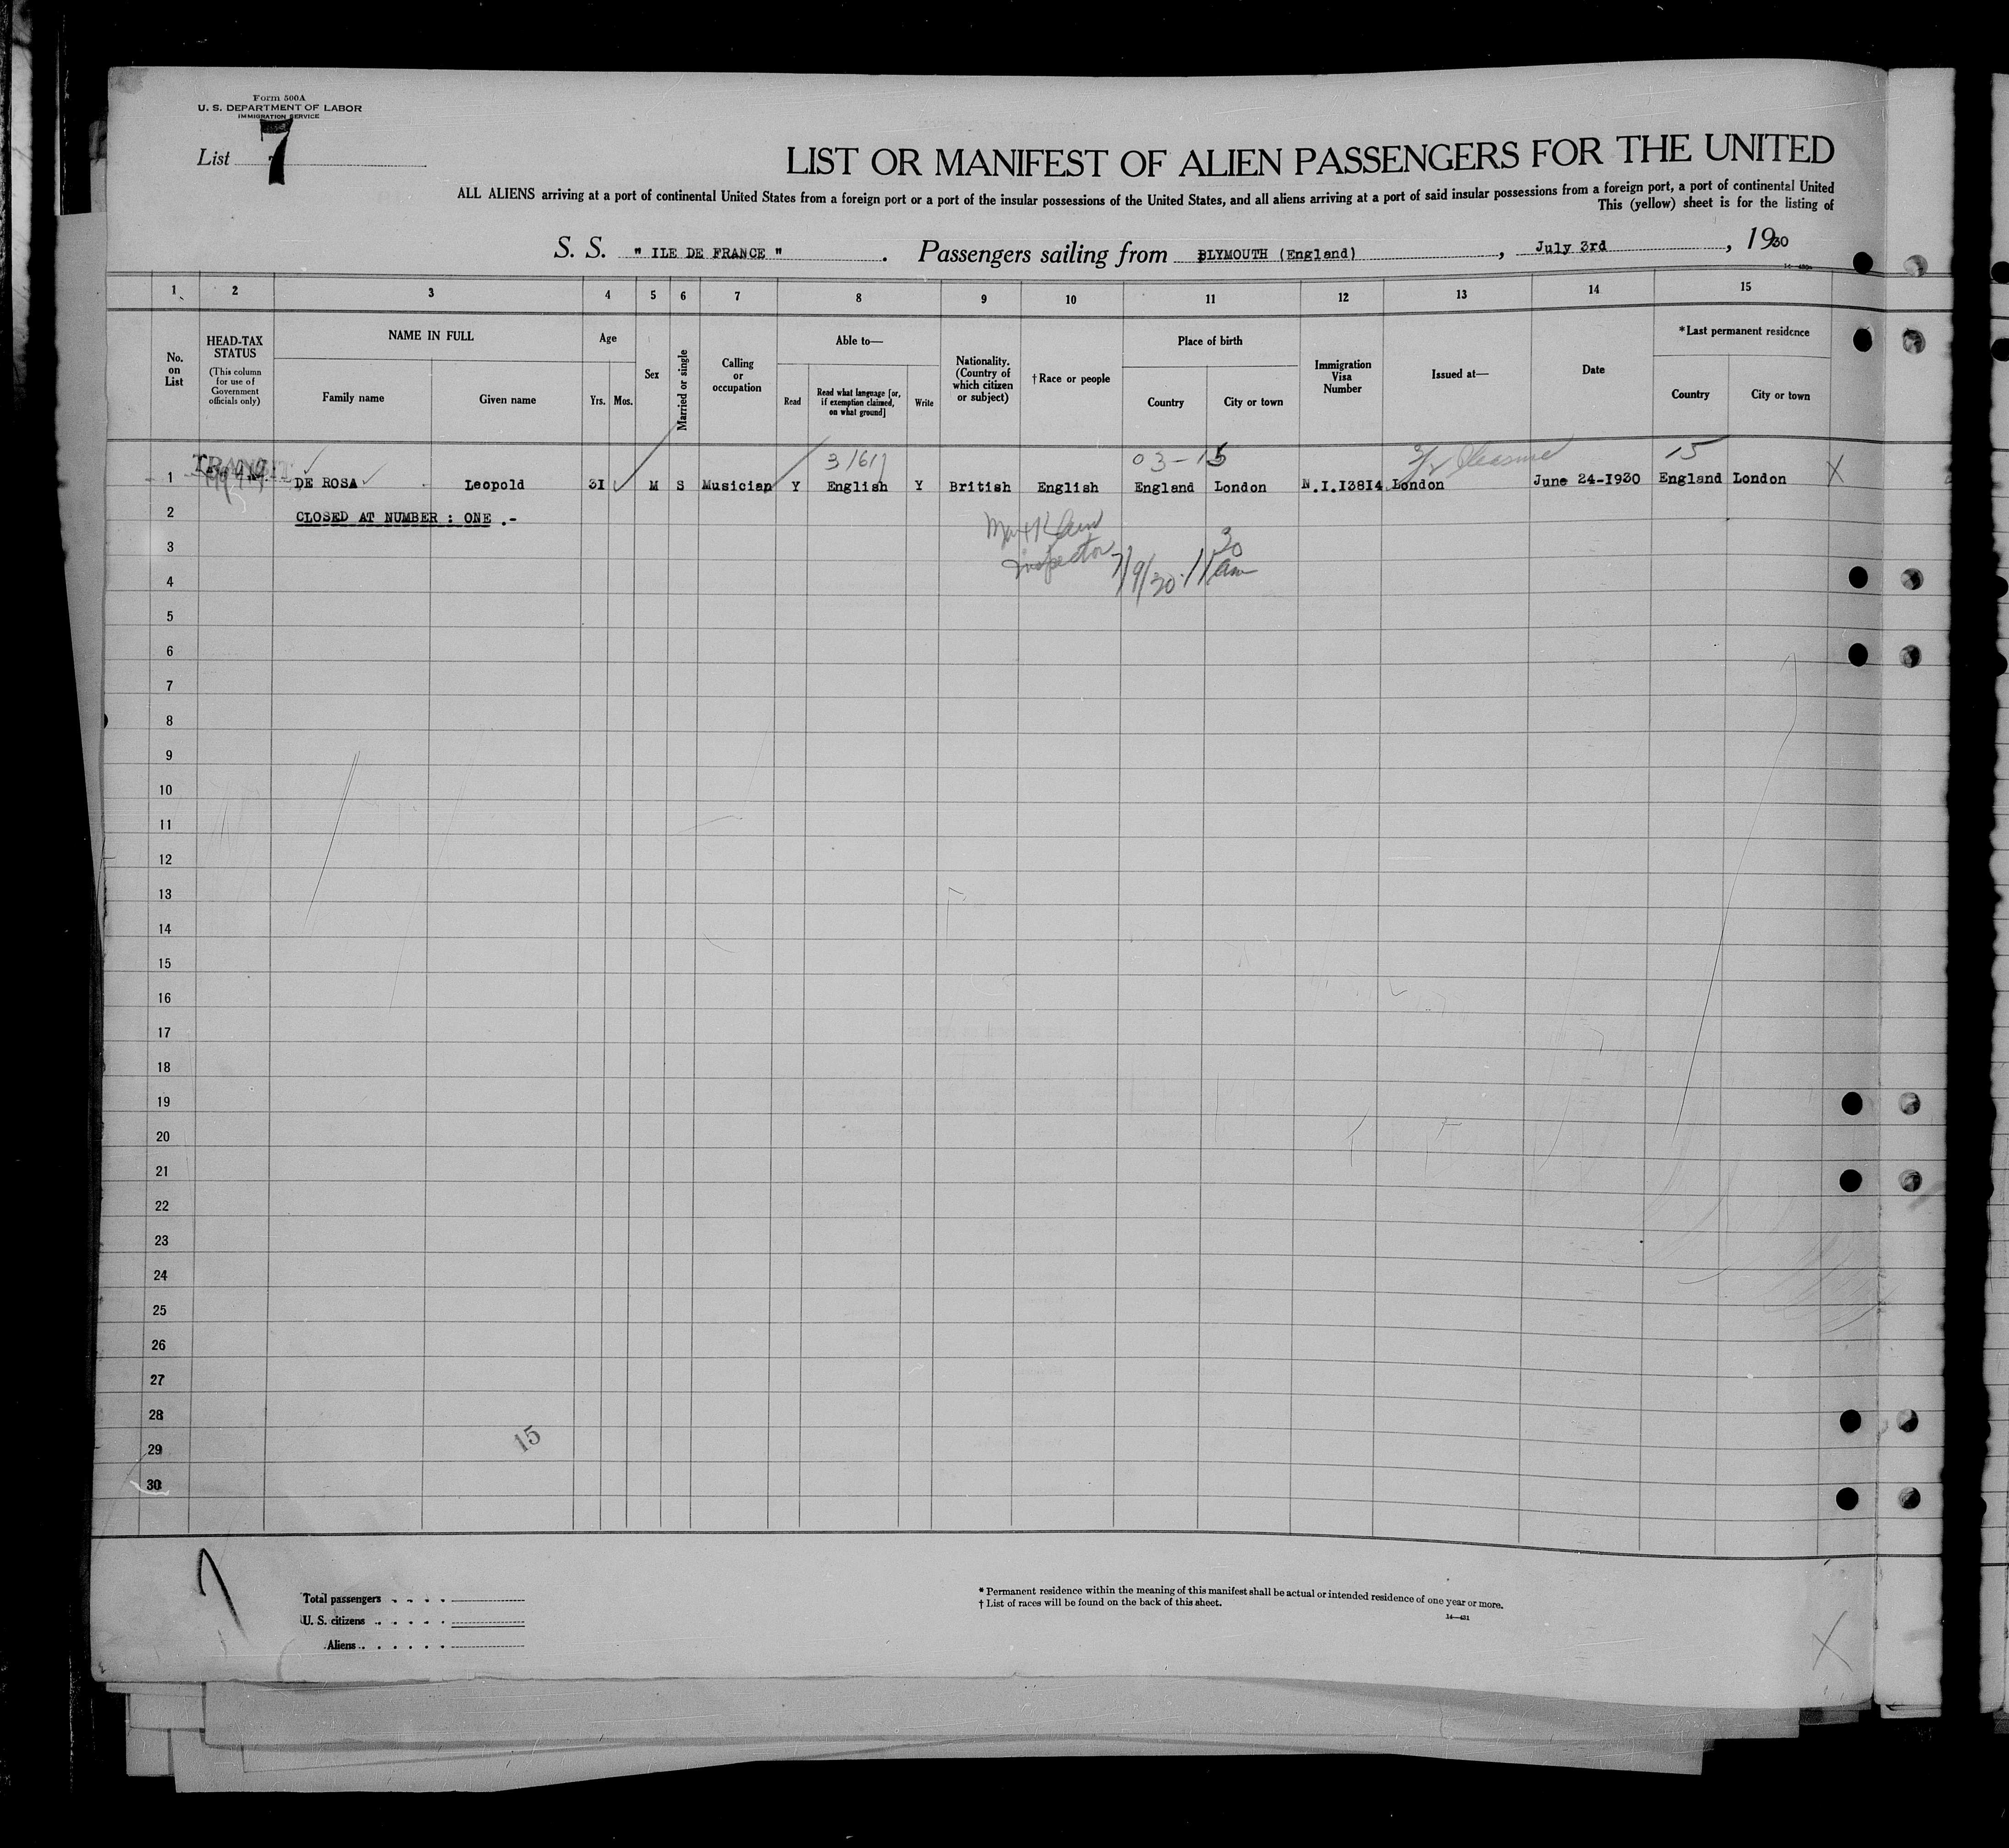 Form 500A
U. S. DEPARTMENT OF LABOR
IMMIGRATION SERVICE
List 7
LIST OR MANIFEST OF ALIEN PASSENGERS FOR THE UNITED
ALL ALIENS arriving at a port of continental United States from a foreign port or a port of the insular possessions of the United States, and all aliens arriving at a port of said insular possessions from a foreign port, a port of continental United
This (yellow) sheet is for the listing of
S. S. " ILE DE FRANCE " . Passengers sailing from PLYMOUTH (England) , July 3rd , 1930
1 2 3 4 5 6 7 8 9 10 11 12 13 14 15
No. on List
HEAD-TAX STATUS
(This column for use of Government officials only)
NAME IN FULL
Family name
Given name
Age
Yrs. Mos.
Sex
Married or single
Calling or occupation
Able to—
Read
Read what language [or, if exemption claimed, on what ground]
Write
Nationality. (Country of which citizen or subject)
† Race or people
Place of birth
Country
City or town
Immigration Visa Number
Issued at—
Date
*Last permanent residence
Country
City or town
TRANSIT 03-15 15
1 DE ROSA Leopold 31 M S Musician Y English Y British English England London N.I.13814 London June 24-1930 England London X
2 CLOSED AT NUMBER : ONE .-
Inspector 7/9/30 11 30 am
3
4
5
6
7
8
9
10
11
12
13
14
15
16
17
18
19
20
21
22
23
24
25
26
27
28
29
30
15
Total passengers . . . .
U. S. citizens . . . . .
Aliens . . . . . .
* Permanent residence within the meaning of this manifest shall be actual or intended residence of one year or more.
† List of races will be found on the back of this sheet.
14—431
X